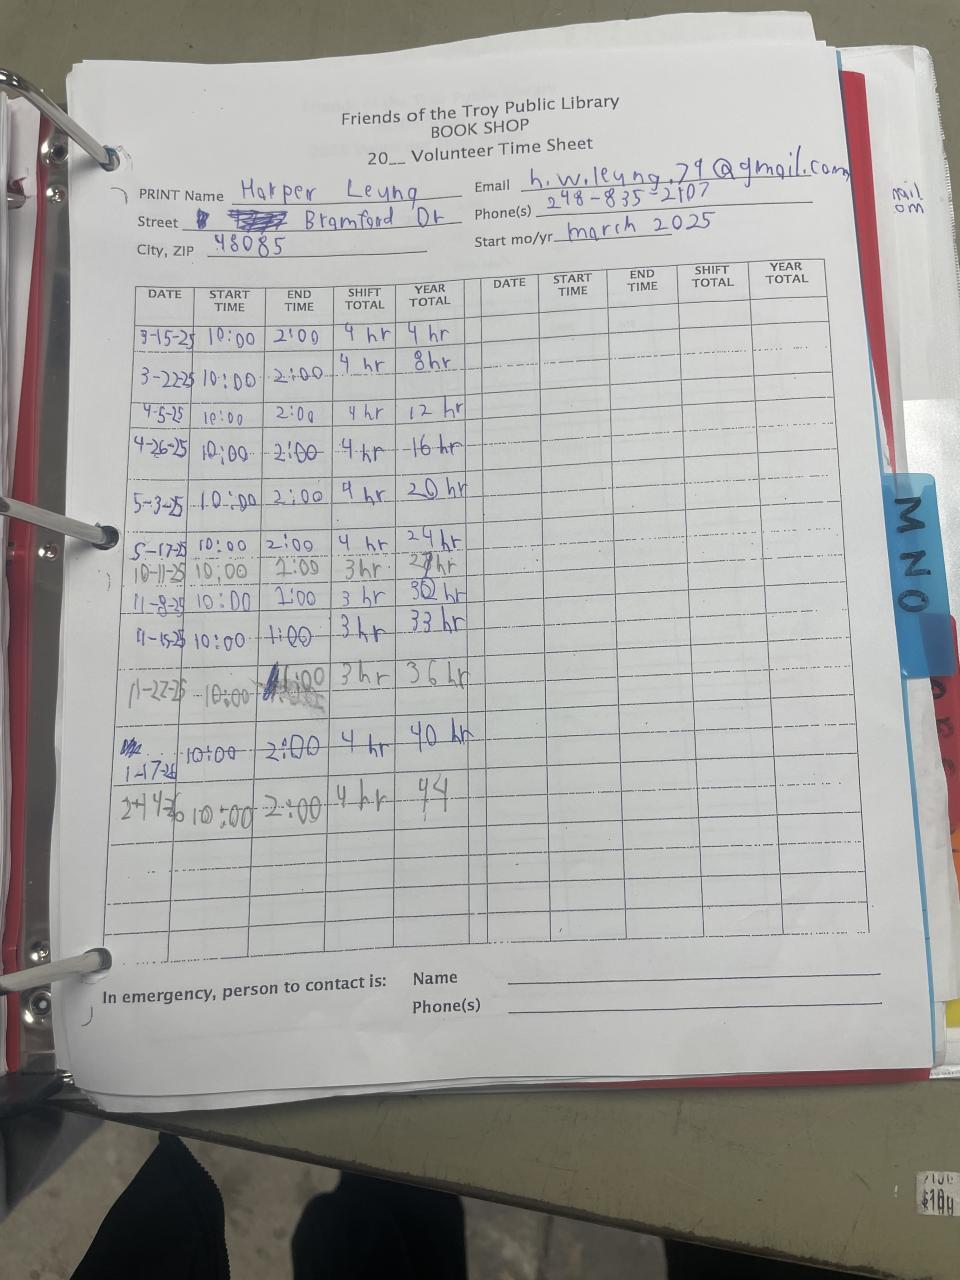 Friends of the Troy Public Library
BOOK SHOP
20__ Volunteer Time Sheet
PRINT Name Harper Leung
Email h.w.leung.79@gmail.com
Street Bramford Dr
Phone(s) 248-835-2107
City, ZIP 48085
Start mo/yr. march 2025
DATE START TIME END TIME SHIFT TOTAL YEAR TOTAL DATE START TIME END TIME SHIFT TOTAL YEAR TOTAL
3-15-25 10:00 2:00 4 hr 4 hr
3-22-25 10:00 2:00 4 hr 8hr
4-5-25 10:00 2:00 4 hr 12 hr
4-26-25 10:00 2:00 4 hr 16 hr
5-3-25 10:00 2:00 4 hr 20 hr
5-17-25 10:00 2:00 4 hr 24 hr
10-11-25 10:00 1:00 3hr hr
11-8-25 10:00 1:00 3 hr 30 hr
11-15-25 10:00 1:00 3 hr 33 hr
11-22-25 10:00 1:00 3 hr 36 hr
1-17-26 10:00 2:00 4 hr 40 hr
10:00 2:00 4 hr 44
In emergency, person to contact is: Name
Phone(s)
MNO